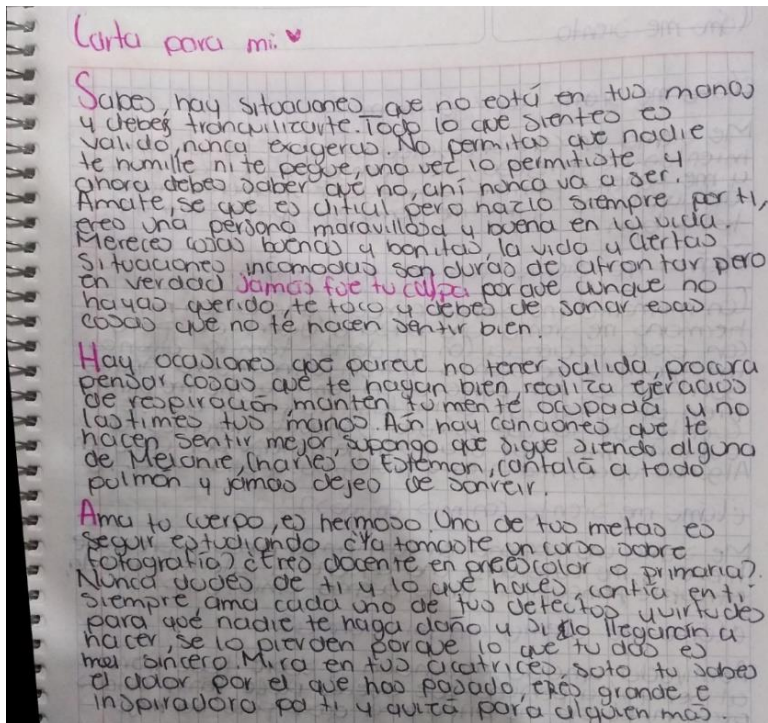 Carta para mi. ♥
Sabes, hay situaciones que no está en tus manos
y debes tranquilizarte. Todo lo que sientes es
valido, nunca exageras. No permitas que nadie
te humille ni te pegue, una vez lo permitiste y
ahora debes saber que no, ahí nunca va a ser.
Amate, se que es dificil pero hazlo siempre por ti,
eres una persona maravillosa y buena en la vida.
Mereces cosas buenas y bonitas, la vida y ciertas
situaciones incomodas son duras de afrontar pero
en verdad jamas fue tu culpa porque aunque no
hayas querido, te toco y debes de sanar esas
cosas que no te hacen sentir bien.
Hay ocasiones que parece no tener salida, procura
pensar cosas que te hagan bien, realiza ejercicios
de respiración, mantén tu mente ocupada y no
lastimes tus manos. Aún hay canciones que te
hacen sentir mejor, supongo que sigue siendo alguna
de Melanie, Charles o Esteman, cantala a todo
pulmon y jamas dejes de sonreir.
Ama tu cuerpo, es hermoso. Una de tus metas es
seguir estudiando ¿Ya tomaste un curso sobre
fotografia? ¿Eres docente en preescolar o primaria?
Nunca dudes de ti y lo que haces, confía en ti
siempre, ama cada uno de tus defectos y virtudes
para que nadie te haga daño y si lo llegaran a
hacer, se lo pierden porque lo que tu das es
muy sincero. Mira en tus cicatrices, solo tu sabes
el dolor por el que has pasado, eres grande e
inspiradora pa ti y quizá para alguien mas.